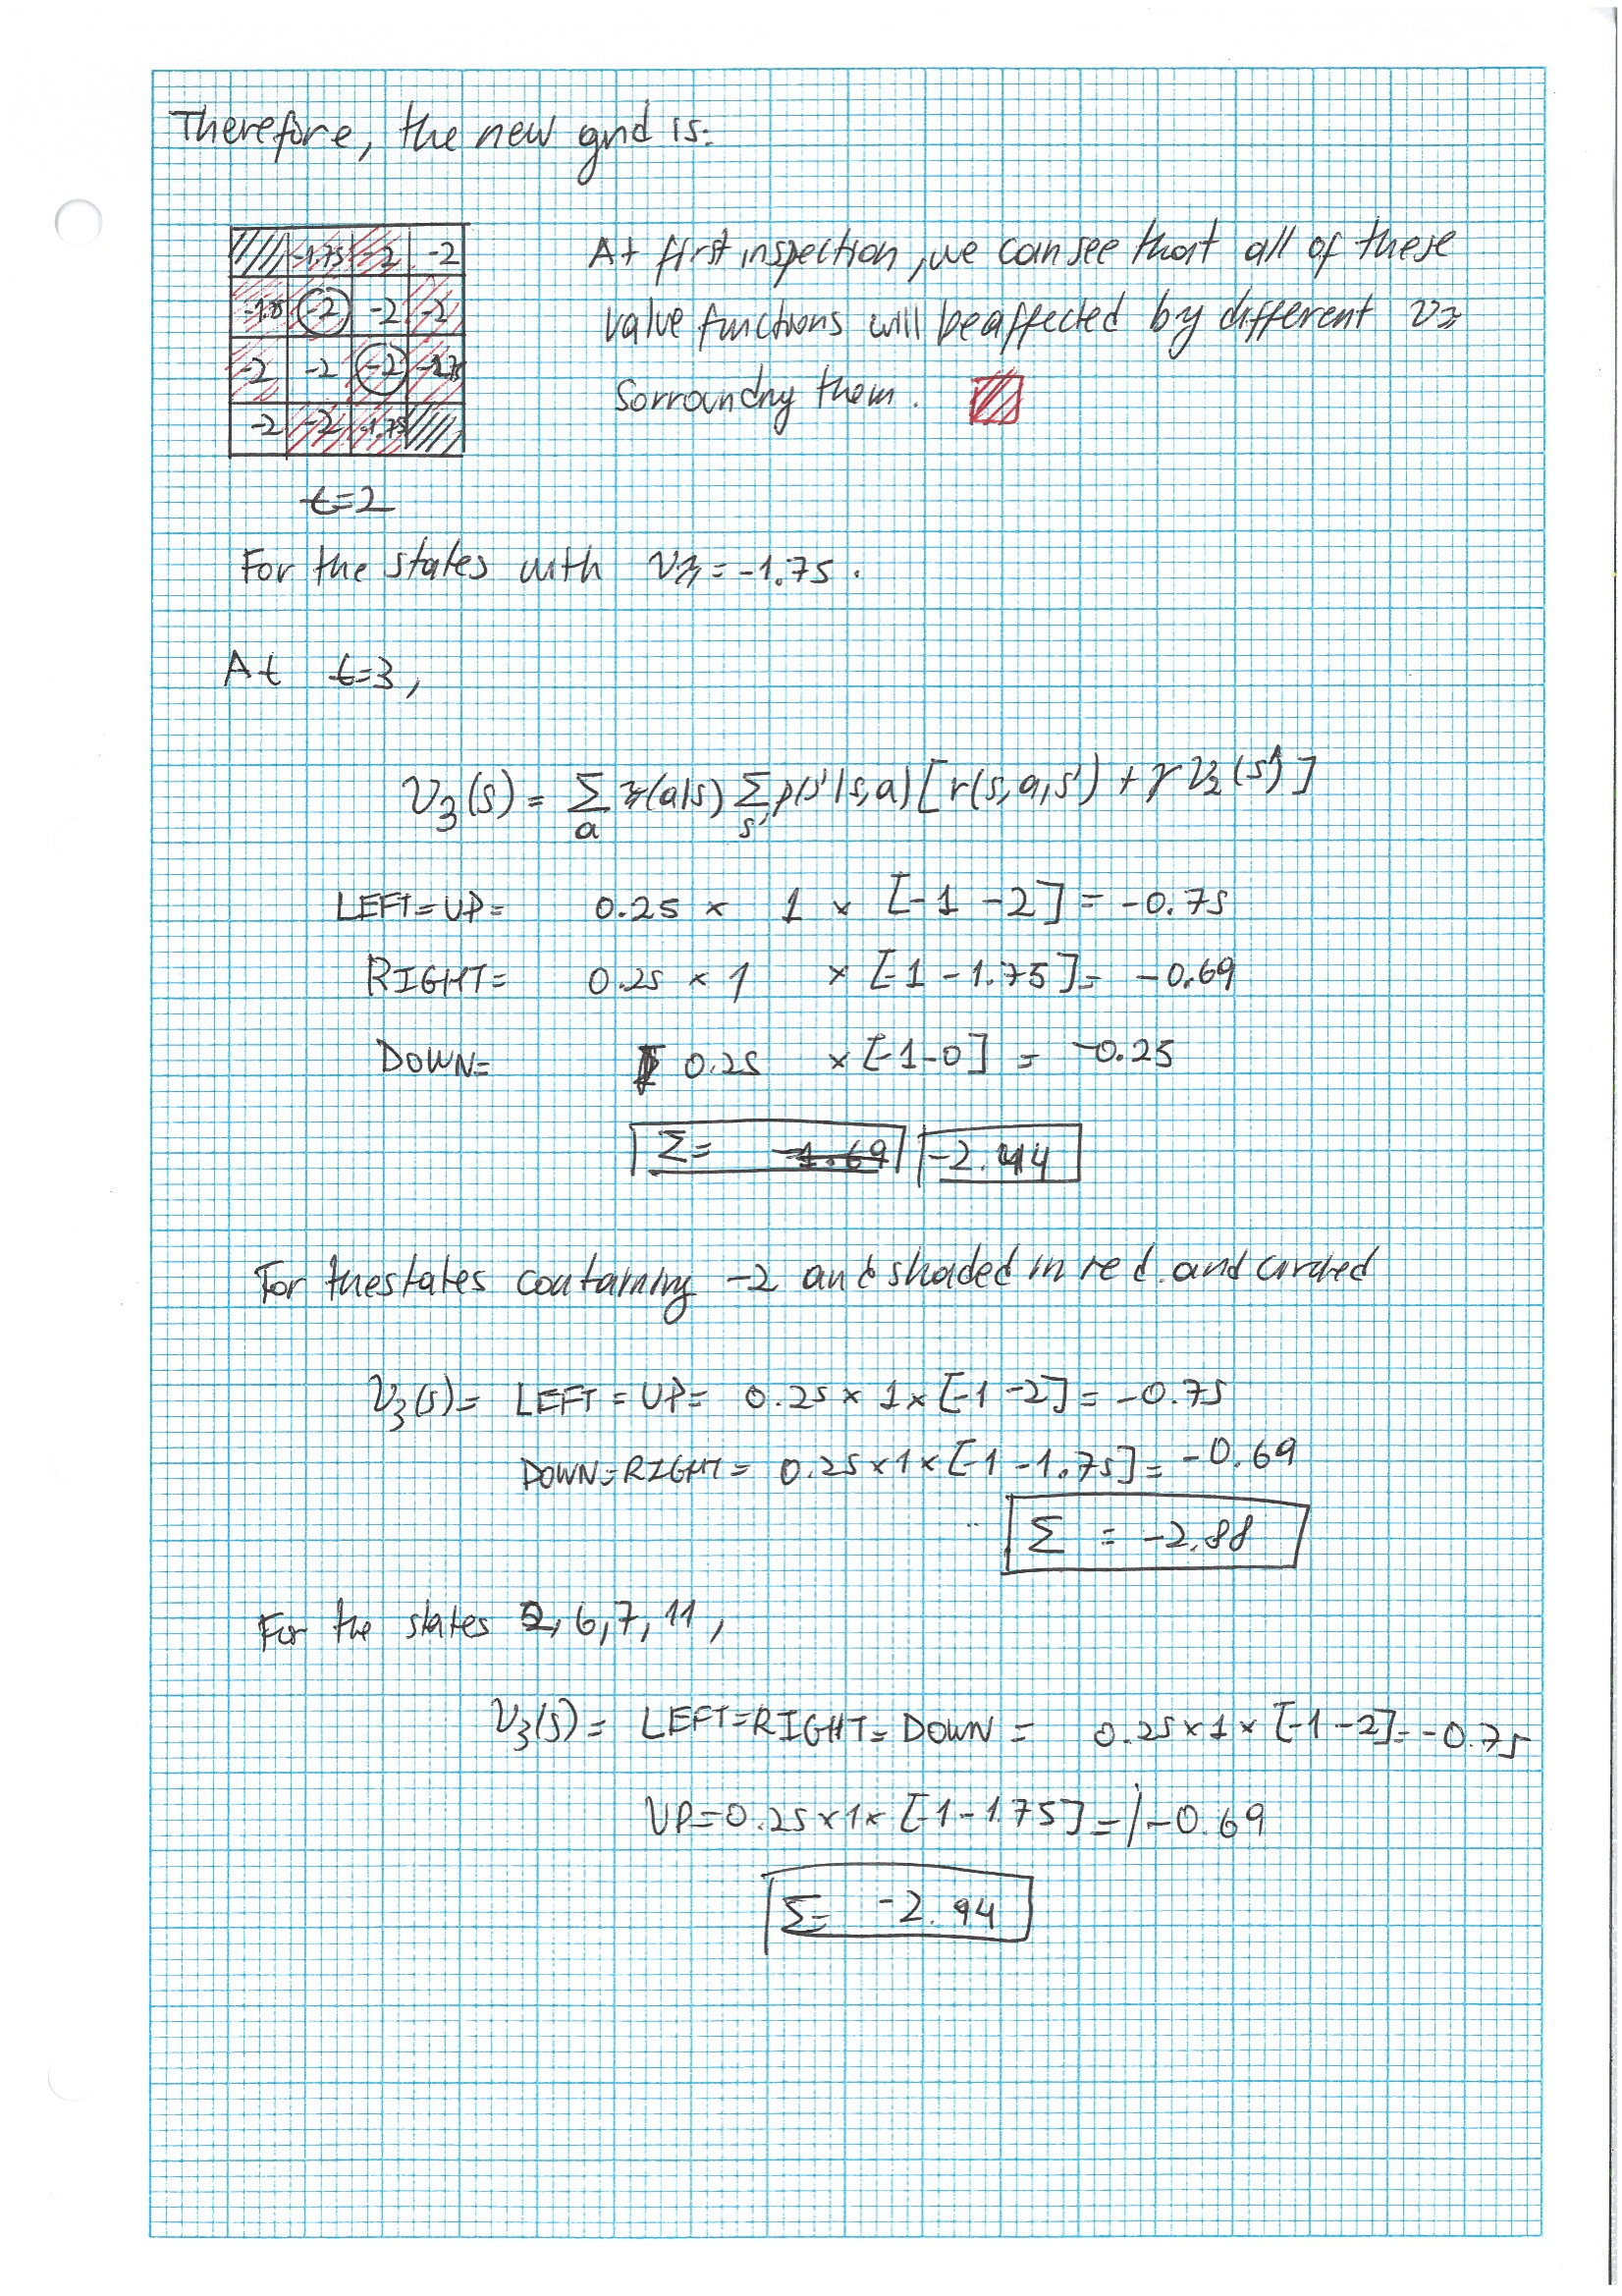 Therefore, the new grid is:
-1.75 -2 -2
-1.75 -2 -2 -2
-2 -2 -2 -1.75
-2 -2 -1.75
At first inspection, we can see that all of these
value functions will be affected by different vπ
sorroundng them.
t=2
For the states with vπ = -1.75.
At t=3,
v3(s) = Σa π(a|s) Σs' p(s'|s,a) [r(s,a,s') + γ v2(s')]
LEFT=UP= 0.25 × 1 × [-1 -2] = -0.75
RIGHT= 0.25 × 1 × [-1 -1.75] = -0.69
DOWN= 0.25 × [-1-0] = -0.25
Σ= -1.69 -2.44
For the states containing -2 and shaded in red and circled
v3(s)= LEFT = UP= 0.25 × 1 × [-1 -2] = -0.75
DOWN=RIGHT= 0.25×1×[-1 -1.75] = -0.69
Σ = -2.88
For the states 2, 6, 7, 11,
v3(s) = LEFT=RIGHT=DOWN = 0.25×1×[-1-2]=-0.75
UP=0.25×1×[-1-1.75]= -0.69
Σ= -2.94